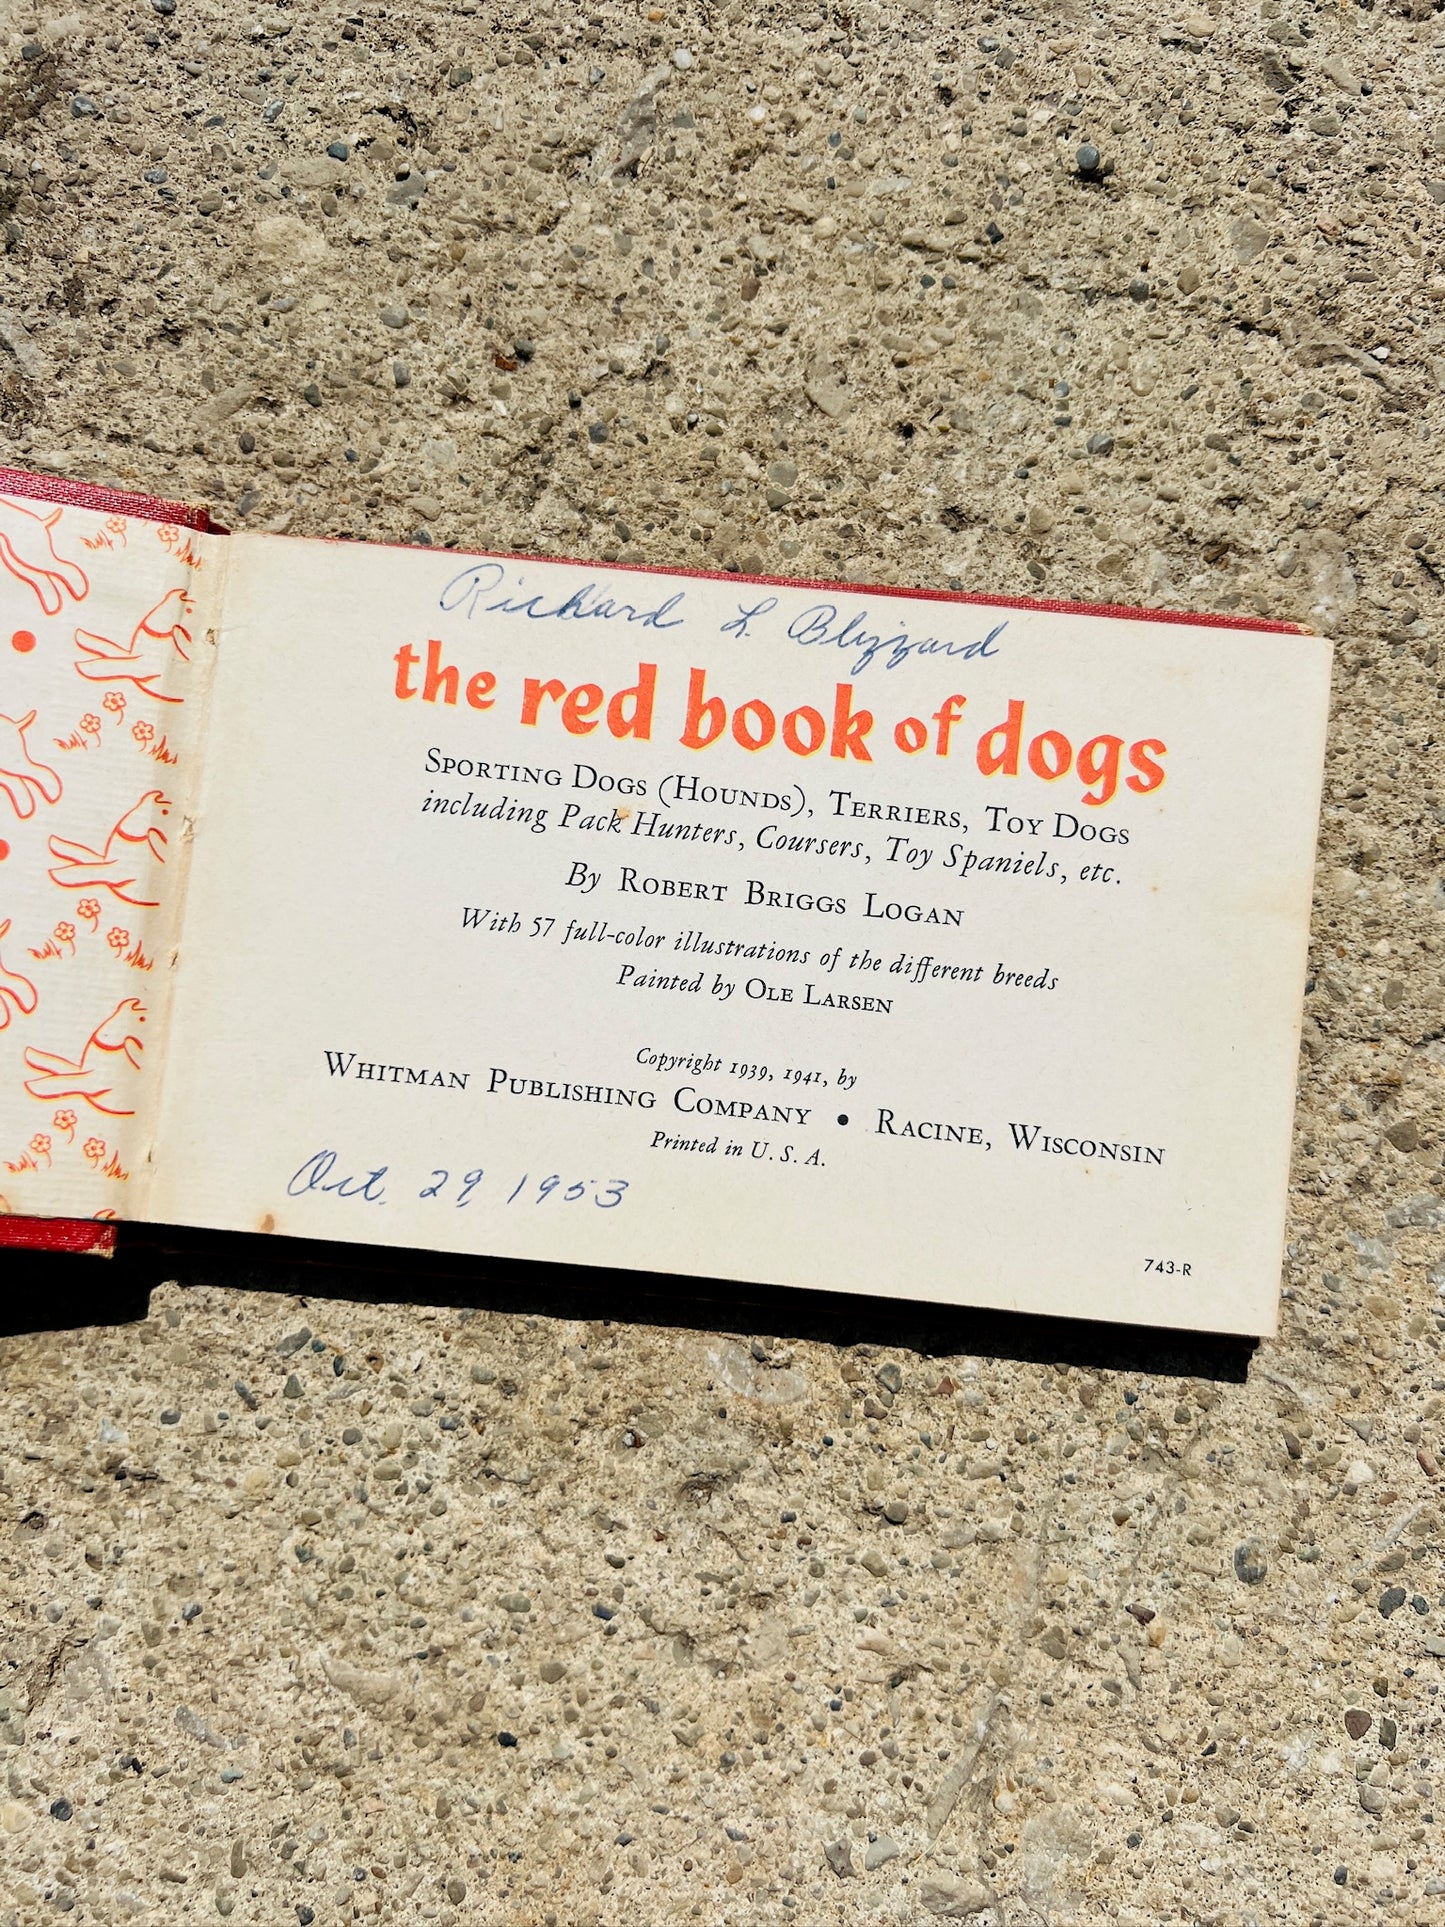 Richard L. Blizzard
the red book of dogs
Sporting Dogs (Hounds), Terriers, Toy Dogs
including Pack Hunters, Coursers, Toy Spaniels, etc.
By Robert Briggs Logan
With 57 full-color illustrations of the different breeds
Painted by Ole Larsen
Copyright 1939, 1941, by
Whitman Publishing Company • Racine, Wisconsin
Printed in U. S. A.
Oct. 29, 1953
743-R